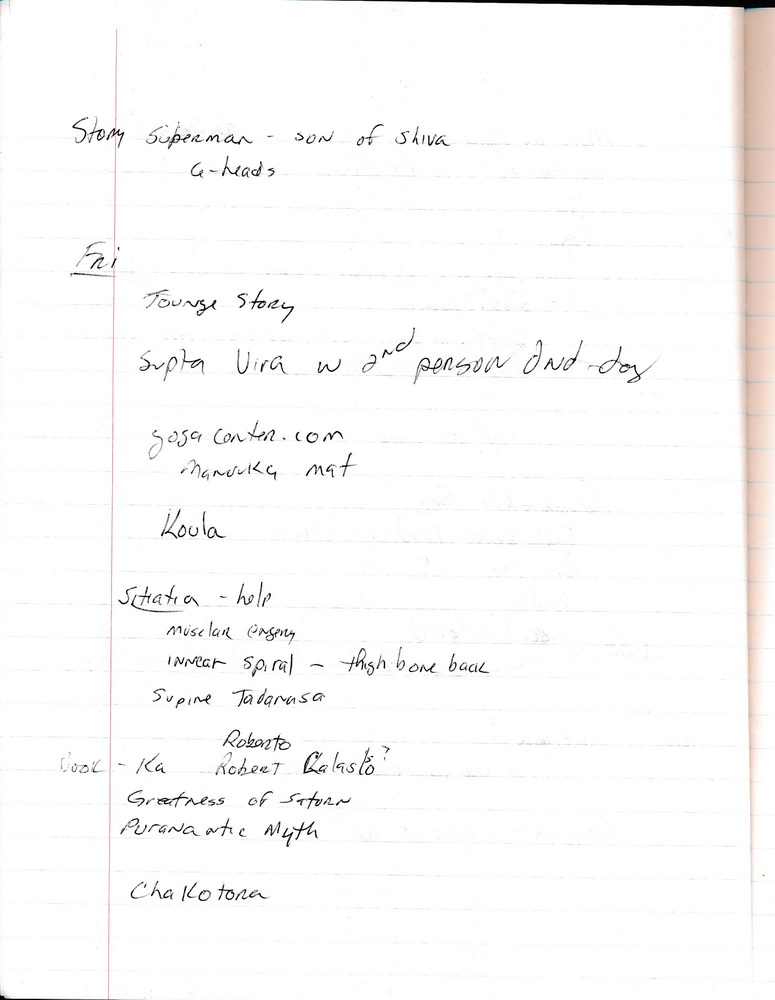 Story Superman - son of Shiva
6-heads
Fri
Tounge Story
Supta Vira w 2nd person 2nd-day
yoga center.com
Manduka mat
Koula
Sciatica - help
Musclar Energy
innear spiral - thigh bone back
Supine Tadanasa
Roberto
Book - Ka Robert Calasso?
Greatness of Saturn
Purana
Myth
Chakotona